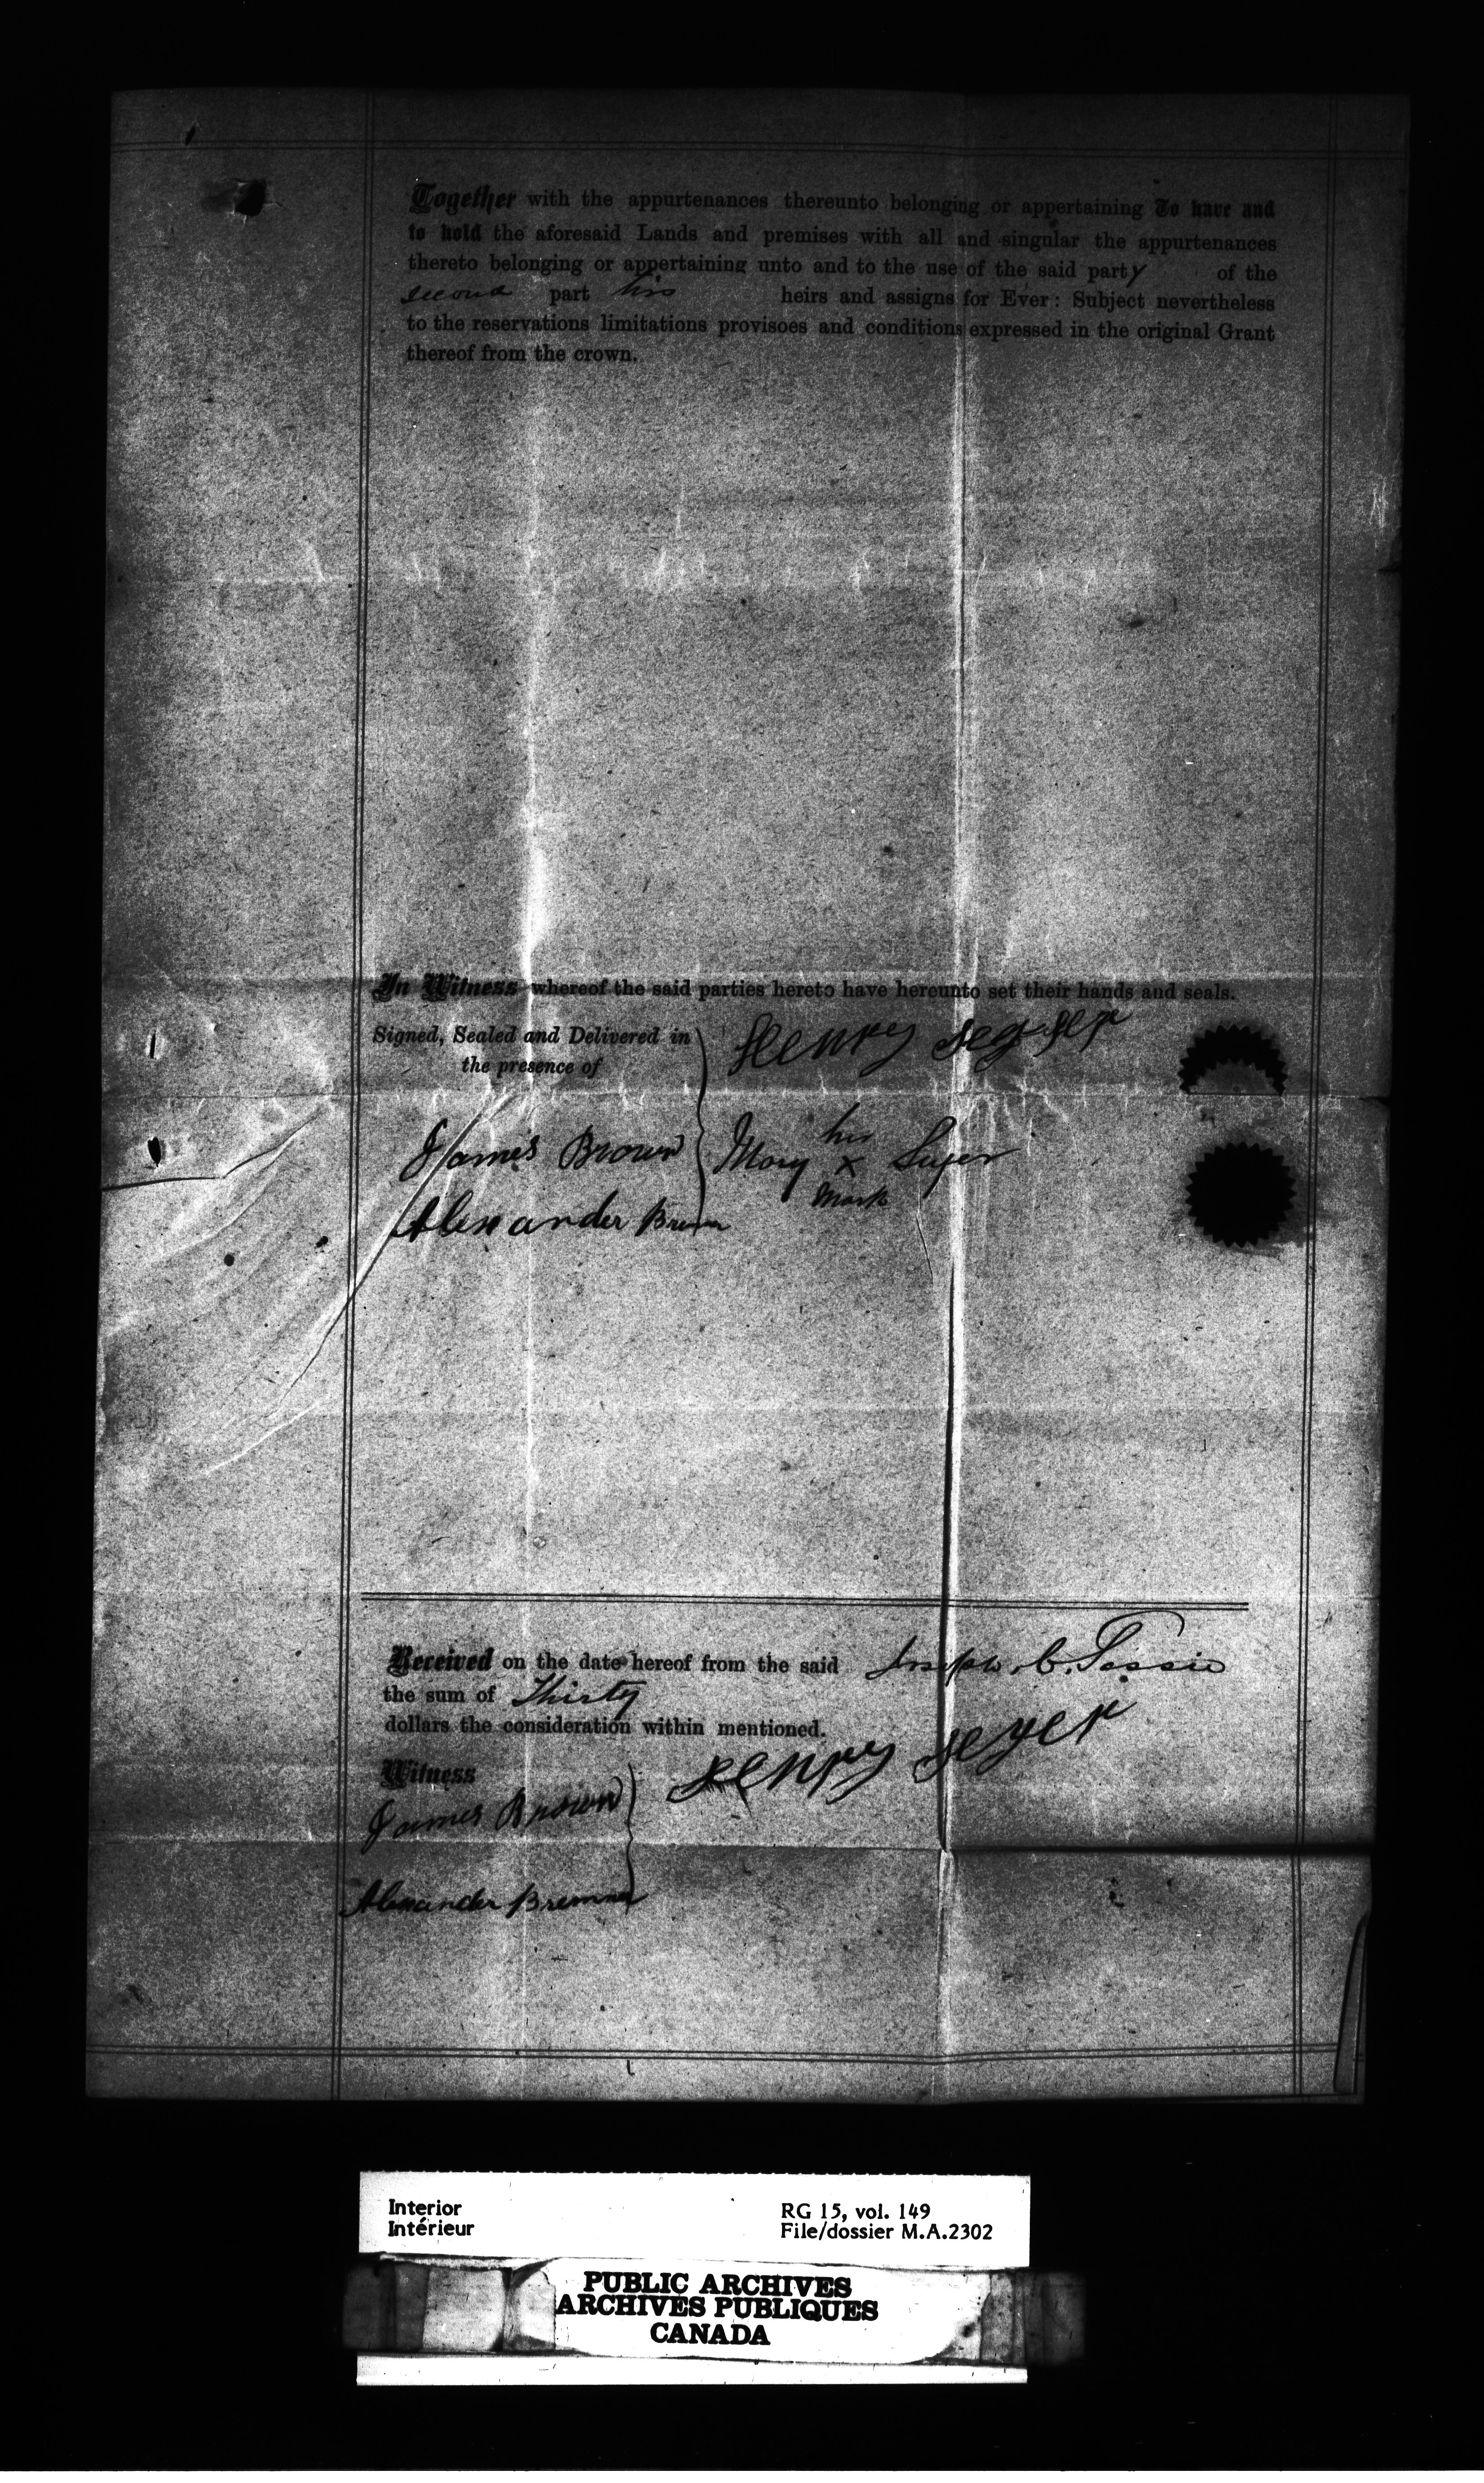 Together with the appurtenances thereunto belonging or appertaining To have and
to hold the aforesaid Lands and premises with all and singular the appurtenances
thereto belonging or appertaining unto and to the use of the said party of the
second part his heirs and assigns for Ever: Subject nevertheless
to the reservations limitations provisoes and conditions expressed in the original Grant
thereof from the crown.
In Witness whereof the said parties hereto have hereunto set their hands and seals.
Signed, Sealed and Delivered in
the presence of
Henry
his
James Brown Mary x
Mark
Alexander Bremner
Received on the date hereof from the said Joseph C.
the sum of Thirty
dollars the consideration within mentioned.
Henry Seyer
Witness
James Brown
Alexander Bremner
Interior
Intérieur
RG 15, vol. 149
File/dossier M.A.2302
PUBLIC ARCHIVES
ARCHIVES PUBLIQUES
CANADA